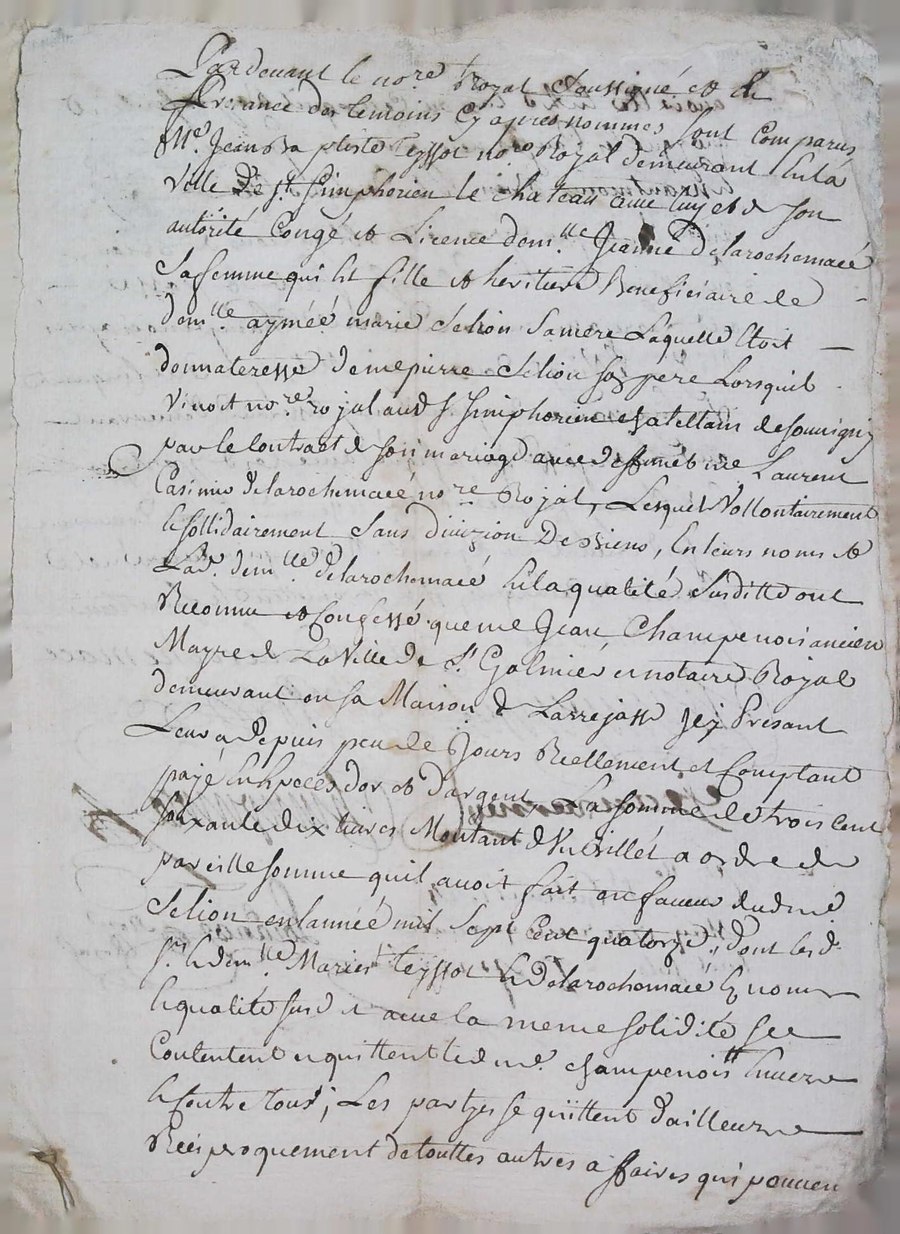 Pardevant le no.re Royal Soussigné et de
presance des temoins cy apres nommes, sont comparus
M.e Jean Baptiste teyssot no.re Royal demeurant en la
ville de s.t simphorien le chateau avec luy et de son
autôrité Congé et Licence dem.lle Jeanne delarochemacé
sa femme qui est fille et heritiere Beneficiaire de
dem.lle aymeé marie Selion sa mere Laquelle Etoit
donnateresse de me pierre Selion son pere Lorsquil
vivoit no.re royal aud s.t simphorien chatellain de
par le Contract de son mariage avec deffunct me Laurent
Casimir delarochemacé no.re Royal, Lesquels Vollontairement
et sollidairement Sans division Des siens, En leurs noms et
Lad. dem.lle delarochemacé en la qualité Susditte ont
Reconnu et Confessé que me Jean Champenois ancien
Mayre de La Ville de s.t Galmier et notaire Royal
demeurant en sa Maison de Larrejasse Jcy Présant
Leur a Depuis peu de Jours Réellement et Comptant
payé En especes dor et dargent La somme de trois cent
soixante dix livres Montant de un Billet a ordre de
pareille somme quil avoit fait en faveur dud me
Selion en lanneé mil Sept Cent quatorze, Dont lesd.
s.r et dem.lle Mariés teyssot et delarochemacé Es noms
et qualité susd et avec la meme solidité se
Contentent et quittent led me. champenois Envers
et Contre tous; Les partyes se quittent d'ailleurs
Réciproquement de touttes autres affaires qui pouvien